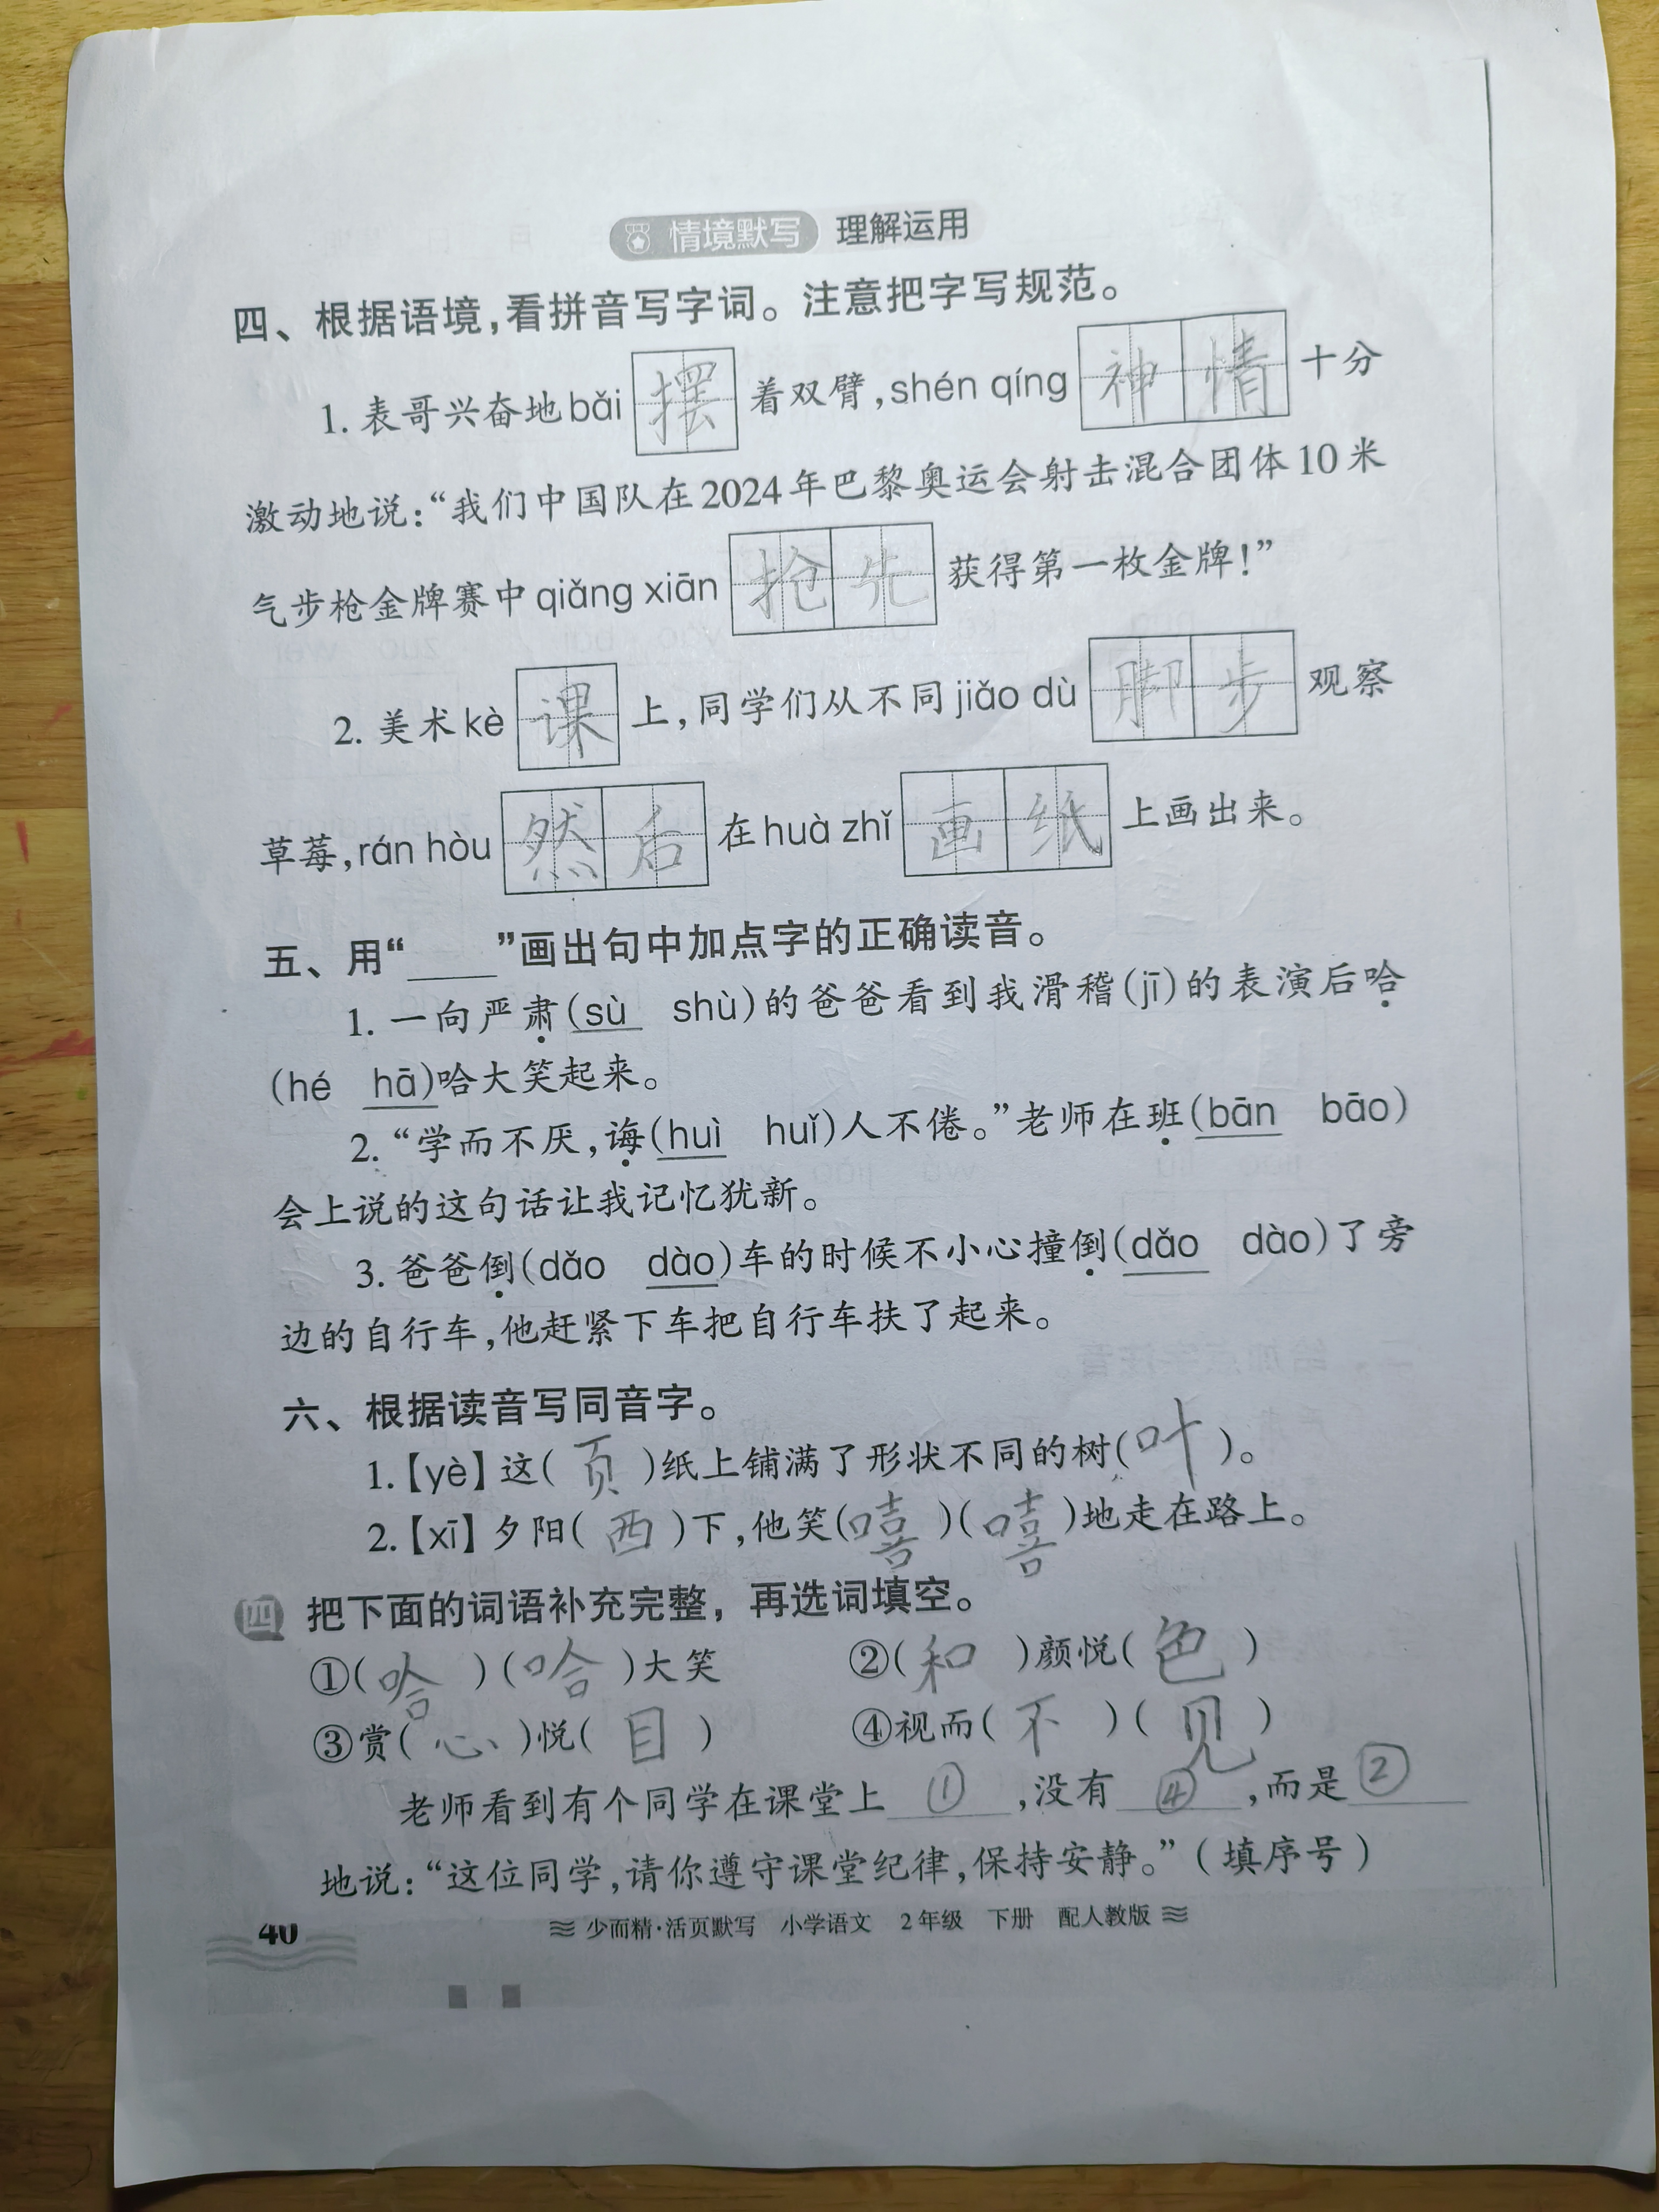 情境默写 理解运用
四、根据语境,看拼音写字词。注意把字写规范。
1. 表哥兴奋地 bǎi 摆 着双臂,shén qíng 神情 十分
激动地说:“我们中国队在2024年巴黎奥运会射击混合团体10米
气步枪金牌赛中 qiǎng xiān 抢先 获得第一枚金牌!”
2. 美术 kè 课 上,同学们从不同 jiǎo dù 脚步 观察
草莓,rán hòu 然后 在 huà zhǐ 画纸 上画出来。
五、用“____”画出句中加点字的正确读音。
1. 一向严肃(sù shù)的爸爸看到我滑稽(jī)的表演后哈
(hé hā)哈大笑起来。
2. “学而不厌,诲(huì huǐ)人不倦。”老师在班(bān bāo)
会上说的这句话让我记忆犹新。
3. 爸爸倒(dǎo dào)车的时候不小心撞倒(dǎo dào)了旁
边的自行车,他赶紧下车把自行车扶了起来。
六、根据读音写同音字。
1.【yè】这(页)纸上铺满了形状不同的树(叶)。
2.【xī】夕阳(西)下,他笑(嘻)(嘻)地走在路上。
四 把下面的词语补充完整,再选词填空。
①(哈)(哈)大笑 ②(和)颜悦(色)
③赏(心)悦(目) ④视而(不)(见)
老师看到有个同学在课堂上 ① ,没有 ④ ,而是 ②
地说:“这位同学,请你遵守课堂纪律,保持安静。”(填序号)
40 少而精·活页默写 小学语文 2年级 下册 配人教版